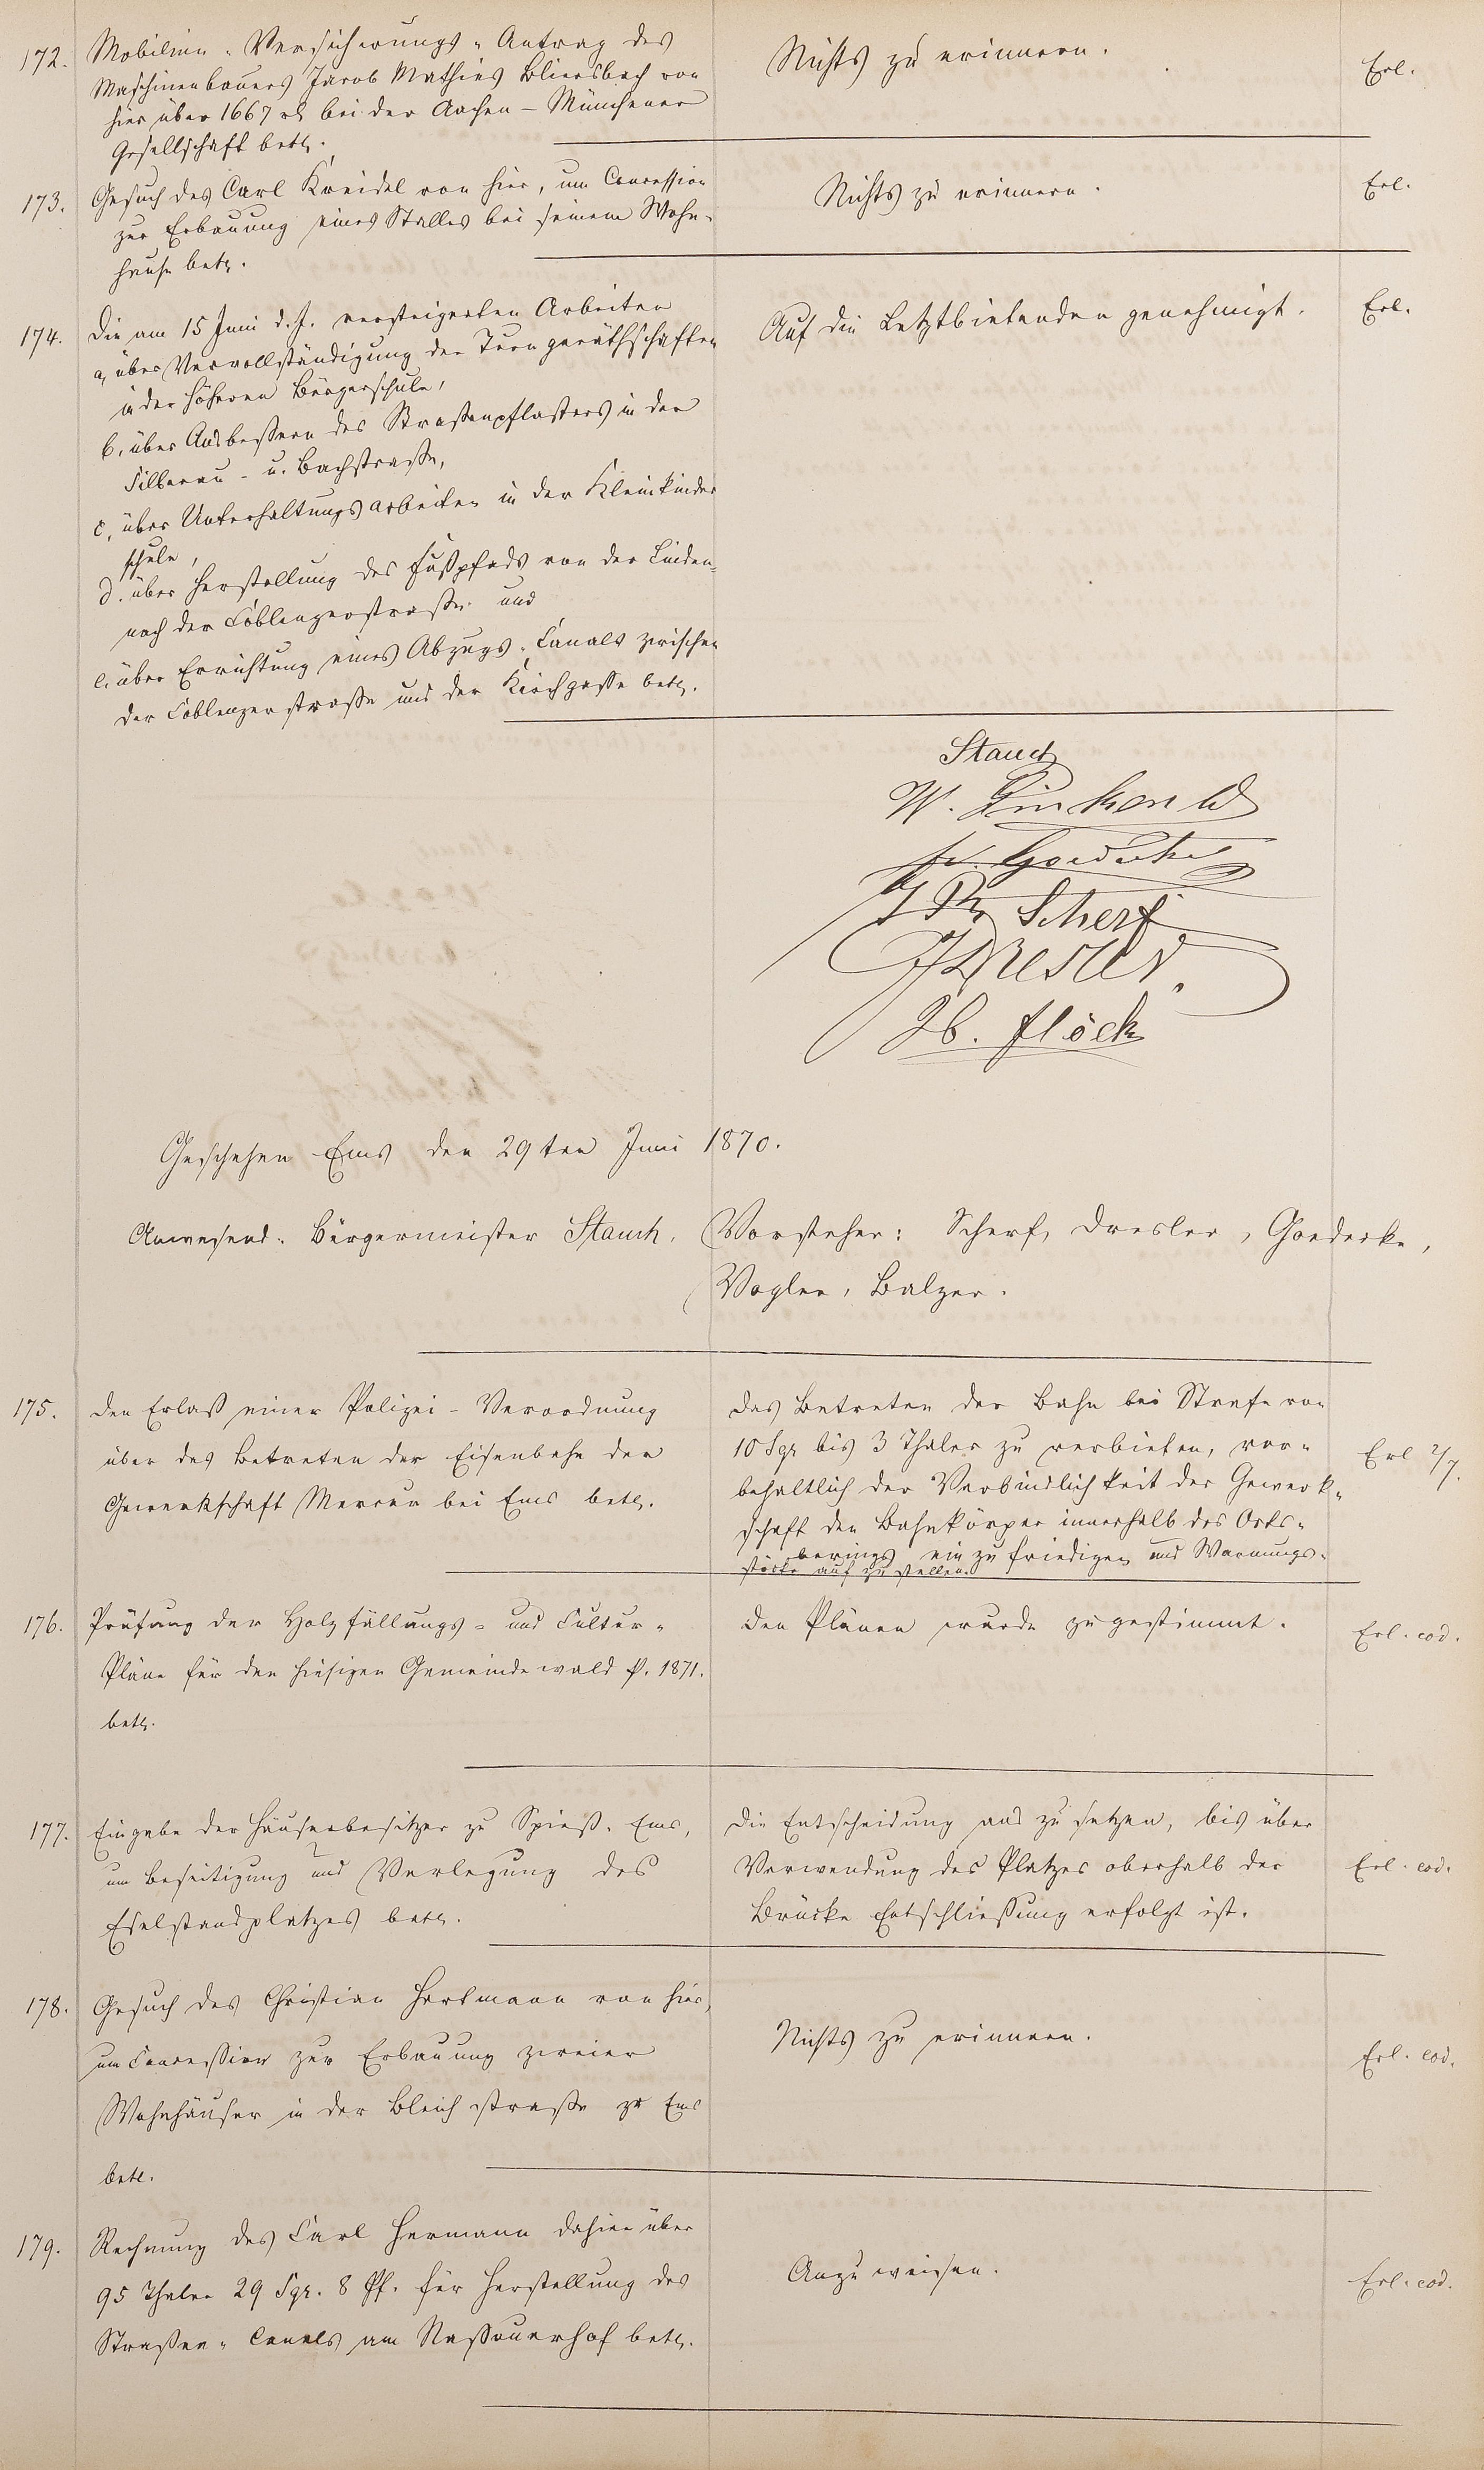 172. Mobilien-Versicherungs-Antrag des
Maschinenbauers Jacob Mathias Bliersbach von
hier über 1667 rt bei der Aachen-Münchener
Gesellschaft betr.
Nichts zu erinnern.
Erl.
173. Gesuch des Carl Kreidel von hier, um Concession
zur Erbauung eines Stalles bei seinem Wohn-
hause betr.
Nichts zu erinnern.
Erl.
174. Die am 15 Juni d. J. versteigerten Arbeiten
a, über Vervollständigung der Turngeräthschaften
in der höheren Bürgerschule,
b, über Ausbeßern des Straßenpflasters in der
Silberau- u. Bachstraße,
c, über Unterhaltungsarbeiten in der Kleinkinder
schule,
d. über Herstellung des Fußpfads von der Linden-
nach der Coblenzerstraße und
e. über Errichtung eines Abzugs-Canals zwischen
der Coblenzerstraße und der Kirchgasse betr.
Auf die Letztbietenden genehmigt.
Erl.
Stauch
W. Linkenbach
Fr. Goedecke
J Ph Scherf
F Dresler.
Jb. Flöck
Geschehen Ems den 29ten Juni 1870.
Anwesend: Bürgermeister Stauch, Vorsteher: Scherf, Dresler, Goedecke,
Vogler, Balzer.
175. Den Erlaß einer Polizei-Verordnung
über das Betreten der Eisenbahn der
Gewerkschaft Mercur bei Ems betr.
Das Betreten der Bahn bei Strafe von
10 Sgr bis 3 Thaler zu verbieten, vor-
behaltlich der Verbindlichkeit der Gewerk-
schaft den Bahnkörper innerhalb des Orts-
berings einzufriedigen und Warnungs-
stöcke aufzustellen.
Erl 2/7.
176. Prüfung der Holzfällungs- und Cultur-
Pläne für den hiesigen Gemeindewald p. 1871.
betr.
Den Plänen wurde zugestimmt.
Erl. eod.
177. Eingabe der Häuserbesitzer zu Spieß-Ems,
um Beseitigung und Verlegung des
Eselstandplatzes betr.
Die Entscheidung auszusetzen, bis über
Verwendung des Platzes oberhalb der
Brücke Entschließung erfolgt ist.
Erl. eod.
178. Gesuch des Christian Hartmann von hier,
um Concession zur Erbauung zweier
Wohnhäuser in der Bleichstraße zu Ems
betr.
Nichts zu erinnern.
Erl. eod.
179. Rechnung des Carl Hermann dahier über
95 Thaler 29 Sgr. 8 Pf. für Herstellung des
Straßen-Canals am Naßauerhof betr.
Anzuweisen.
Erl. eod.